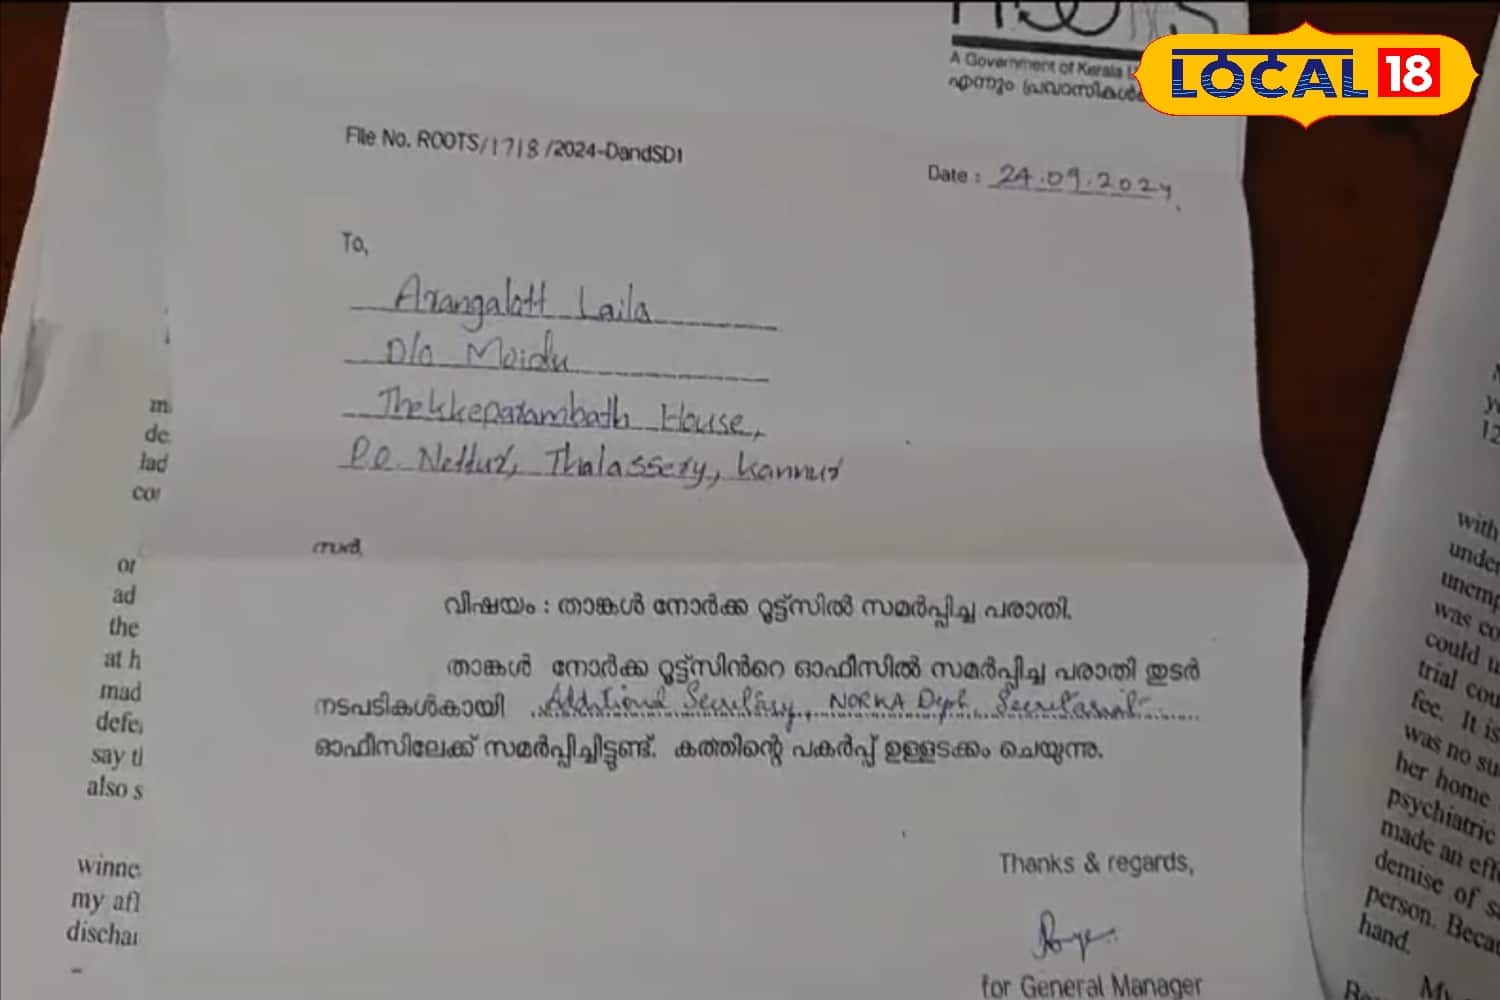 A Government of Kerala
എന്നും പ്രവാസികൾക്ക്
LOCAL 18
File No. ROOTS/1718/2024-DandSD1
Date : 24.09.2024
To,
Arangalott Laila
D/o Moidu
Thekkeparambath House,
P.O. Nettur, Thalassery, Kannur
സർ,
വിഷയം : താങ്കൾ നോർക്ക റൂട്ട്സിൽ സമർപ്പിച്ച പരാതി.
താങ്കൾ നോർക്ക റൂട്ട്സിൻറെ ഓഫീസിൽ സമർപ്പിച്ച പരാതി തുടർ
നടപടികൾകായി Additional Secretary, NORKA Dept, Secretariat
ഓഫീസിലേക്ക് സമർപ്പിച്ചിട്ടുണ്ട്. കത്തിന്റെ പകർപ്പ് ഉള്ളടക്കം ചെയുന്നു.
Thanks & regards,
for General Manager
or
ad
the
at h
mad
say
also s
winne
my
with
under
was
could
trial
fee. It is
was no
her home
psychiatric
made an
demise of
person.
hand.